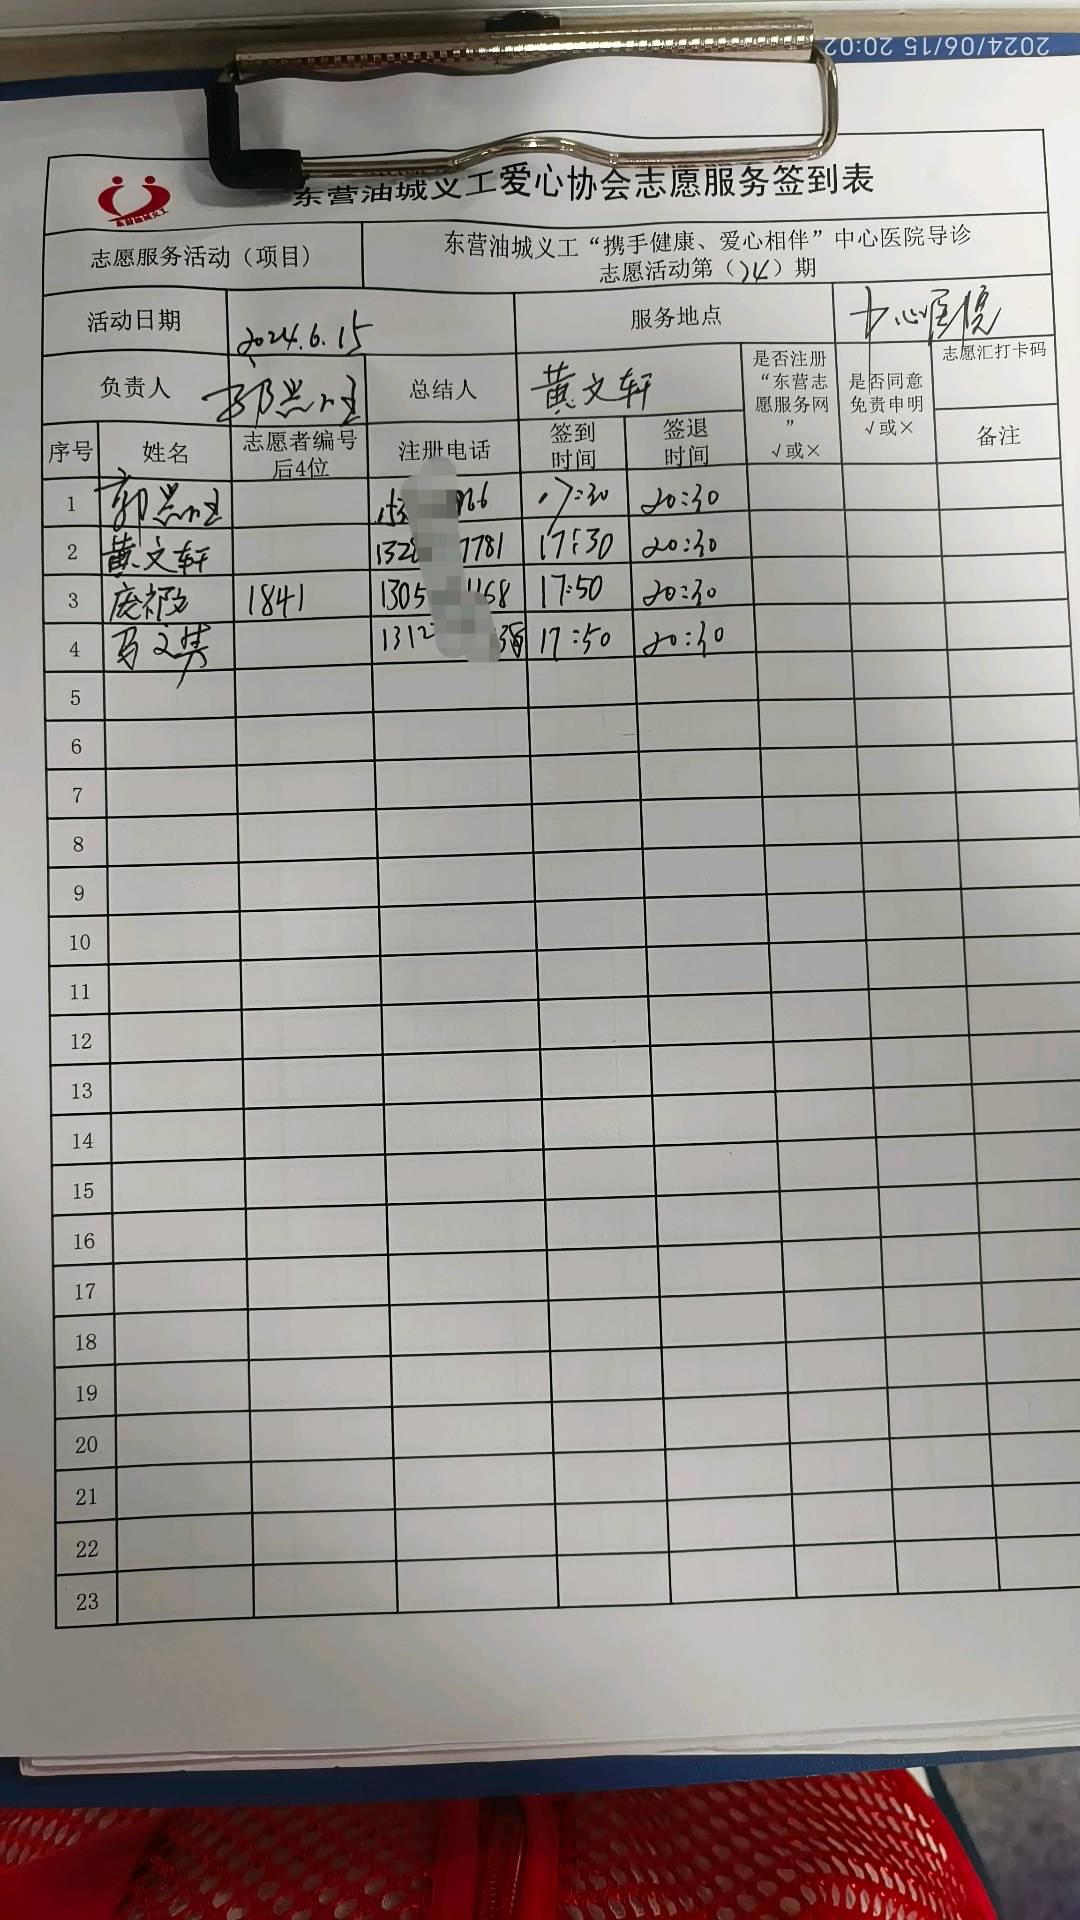 2024/06/15 20:02
东营油城义工爱心协会志愿服务签到表
东营油城义工
志愿服务活动（项目）
东营油城义工“携手健康、爱心相伴”中心医院导诊
志愿活动第（24）期
活动日期 2024.6.15 服务地点 中心医院
负责人 总结人 黄文轩
是否注册“东营志愿服务网” √或×
是否同意免责申明 √或×
志愿汇打卡码
备注
序号 姓名 志愿者编号后4位 注册电话 签到时间 签退时间
1 153 66 17:30 20:30
2 黄文轩 132 7781 17:30 20:30
3 1841 1305 1168 17:50 20:30
4 1312 17:50 20:30
5
6
7
8
9
10
11
12
13
14
15
16
17
18
19
20
21
22
23